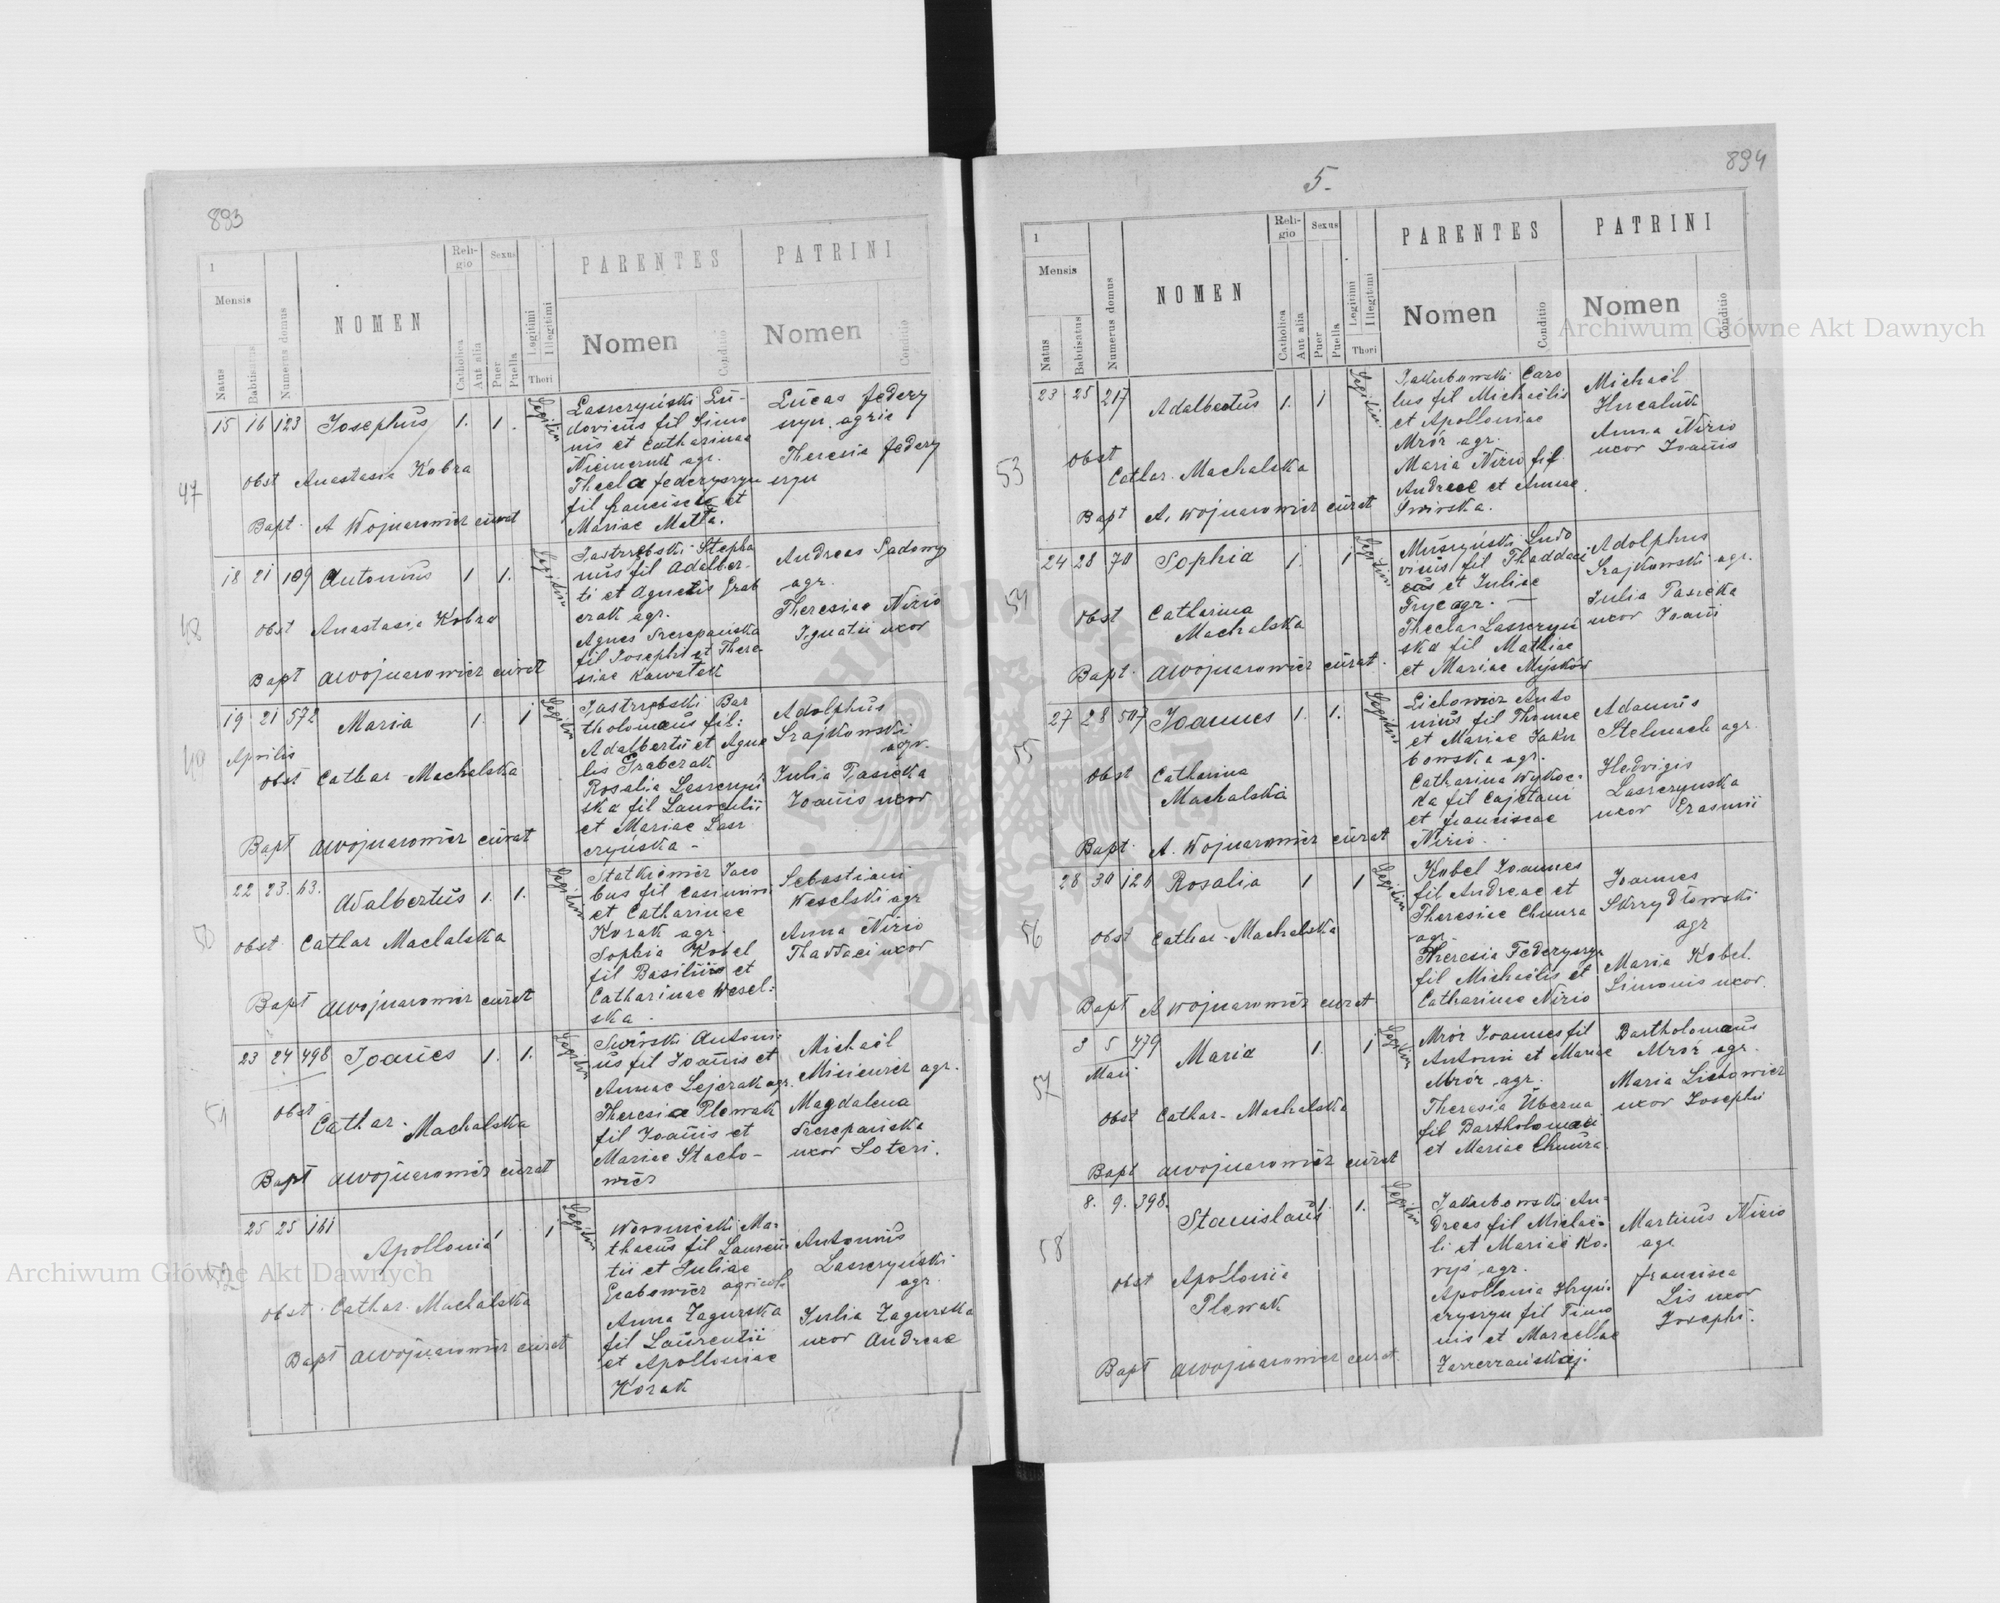 893
1
Mensis
Natus
Babtisatus
Numerus domus
NOMEN
Reli-
gio
Catholica
Aut alia
Sexus
Puer
Puella
Legitimi
Illegitimi
Thori
PARENTES
Nomen
Conditio
PATRINI
Nomen
Conditio
47
15 16 123 Josephus 1. 1.
Legitim
Obst Anastasia Kobza
Bapt. A Wojnarowicz curat
Laszczyński Lu-
dovicus fil Simo
nis et Catharinae
agr.
Thecla Federyszyn
fil Francisci et
Mariae Matta.
Lucas Federy
szyn agric
Theresia Federy
szyn
48
18 21 109 Antonius 1 1.
Legitim
Obst Anastasia Kobza
Bapt AWojnarowicz curat
Jastrzębski Stepha
nus fil Adalber-
ti et Agnetis Grab
czak agr.
Agnes Szczepańska
fil Josephi et There
siae Kawałek
Andreas Sadowy
agr.
Theresiae Nizio
Ignatii uxor
19 21 572 Maria 1. 1
Legitim
Aprilis
Obst Cathar Machalska
Bapt AWojnarowicz curat
Jastrzębski Bar
tholomæus fil:
Adalberti et Agne
tis Grabczak
Rosalia Laszczyń
ska fil Laurentii
et Mariae Lasz
czyńska -
Adolphus
Szajkowski
agr.
Julia Pasieka
Joañis uxor
50
22 23. 43. Adalbertus 1. 1.
Legitim
Obst Cathar Machalska
Bapt AWojnarowicz curat
Statkiewicz Jaco
bus fil Casimiri
et Catharinae
Kozak agr.
Sophia Kobel
fil Basilii et
Catharinae Wesel:
ska.
Sebastiani
Weselski agr
Anna Nizio
Thaddaei uxor
51
23 24 498 Joañes 1. 1.
Legitim
Obst
Cathar. Machalska
Bapt AWojnarowicz curat
Swirski Antoni
us fil Joañis et
Annae Lejczak agr.
Theresia Plewak
fil Joañis et
Mariae Stacho-
wicz
Michaël
Winiewicz agr.
Magdalena
Szczepańska
uxor Soteri.
52
25 25 161
Apollonia 1 1
Legitim
Obst. Cathar. Machalska
Bapt AWojnarowicz curat
Woronicki Ma-
thaeus fil Lauren
tii et Juliae
Grabowicz agricol
Anna Zagurska
fil Laurentii
et Apolloniae
Kozak
Antonius
Laszczyński
agr.
Julia Zagurska
uxor Andreae
5.
894
1
Mensis
Natus
Babtisatus
Numerus domus
NOMEN
Reli-
gio
Catholica
Aut alia
Sexus
Puer
Puella
Legitimi
Illegitimi
Thori
PARENTES
Nomen
Conditio
PATRINI
Nomen
Conditio
53
23 25 217 Adalbertus 1. 1
Legitim
Obst
Cathar. Machalska
Bapt A. Wojnarowicz curat
Jakubowski Caro
lus fil Michaëlis
et Apolloniae
Mróz agr.
Maria Nizio fil
Andreae et Annae
Swirska.
Michaël
Hucaluk
Anna Nizio
uxor Joañis
54
24 28 70 Sophia 1. 1
Legitim
Obst Catharina
Machalska
Bapt. AWojnarowicz curat.
Muszyński Ludo
vicus fil Thaddaei
et Juliae
Fryc agr.
Thecla Laszczyń
ska fil Mathiae
et Mariae Myśków
Adolphus
Szajkowski agr.
Julia Pasieka
uxor Joañi
55
27 28 507 Joannes 1. 1.
Legitim
Obst Catharina
Machalska
Bapt. A. Wojnarowicz curat
Lichowicz Anto
nius fil Thomae
et Mariae Jaku
bowska agr.
Catharina Wysoc-
ka fil Cajetani
et Franciscae
Nizio.
Adamus
Stelmach agr.
Hedvigis
Laszczynska
uxor Erasmii
56
28 30 Rosalia 1 1
Legitim
Obst Cathar. Machalska
Bapt A Wojnarowicz curat.
Kobel Joannes
fil Andreae et
Theresiae Chmura
agr.
Theresia Federyszyn
fil Michaëlis et
Catharinae Nizio
Joannes
Skrzydłowski
agr
Maria Kobel
Simonis uxor.
57
3 5 479 Maria 1. 1
Legitim
Maii
Obst Cathar. Machalska
Bapt AWojnarowicz curat
Mróz Joannes fil
Antoni et Mariae
Mróz agr.
Theresia Uberna
fil Bartholomæi
et Mariae Chmura
Bartholomæus
Mróz agr.
Maria Lichowicz
uxor Josephi
58
8. 9. 398. Stanislaus 1. 1.
Legitim
Obst Apollonia
Plewak
Bapt AWojnarowicz curat.
Jakubowski An-
dreas fil Michaë-
li et Mariae Ko-
agr.
Apollonia Hryni
czyszyn fil Simo
nis et Marcellae
Martinus Nizio
agr.
Francisca
Lis uxor
Josephi.
Archiwum Główne Akt Dawnych
Archiwum Główne Akt Dawnych
ARCHIWUM GŁÓWNE AKT DAWNYCH